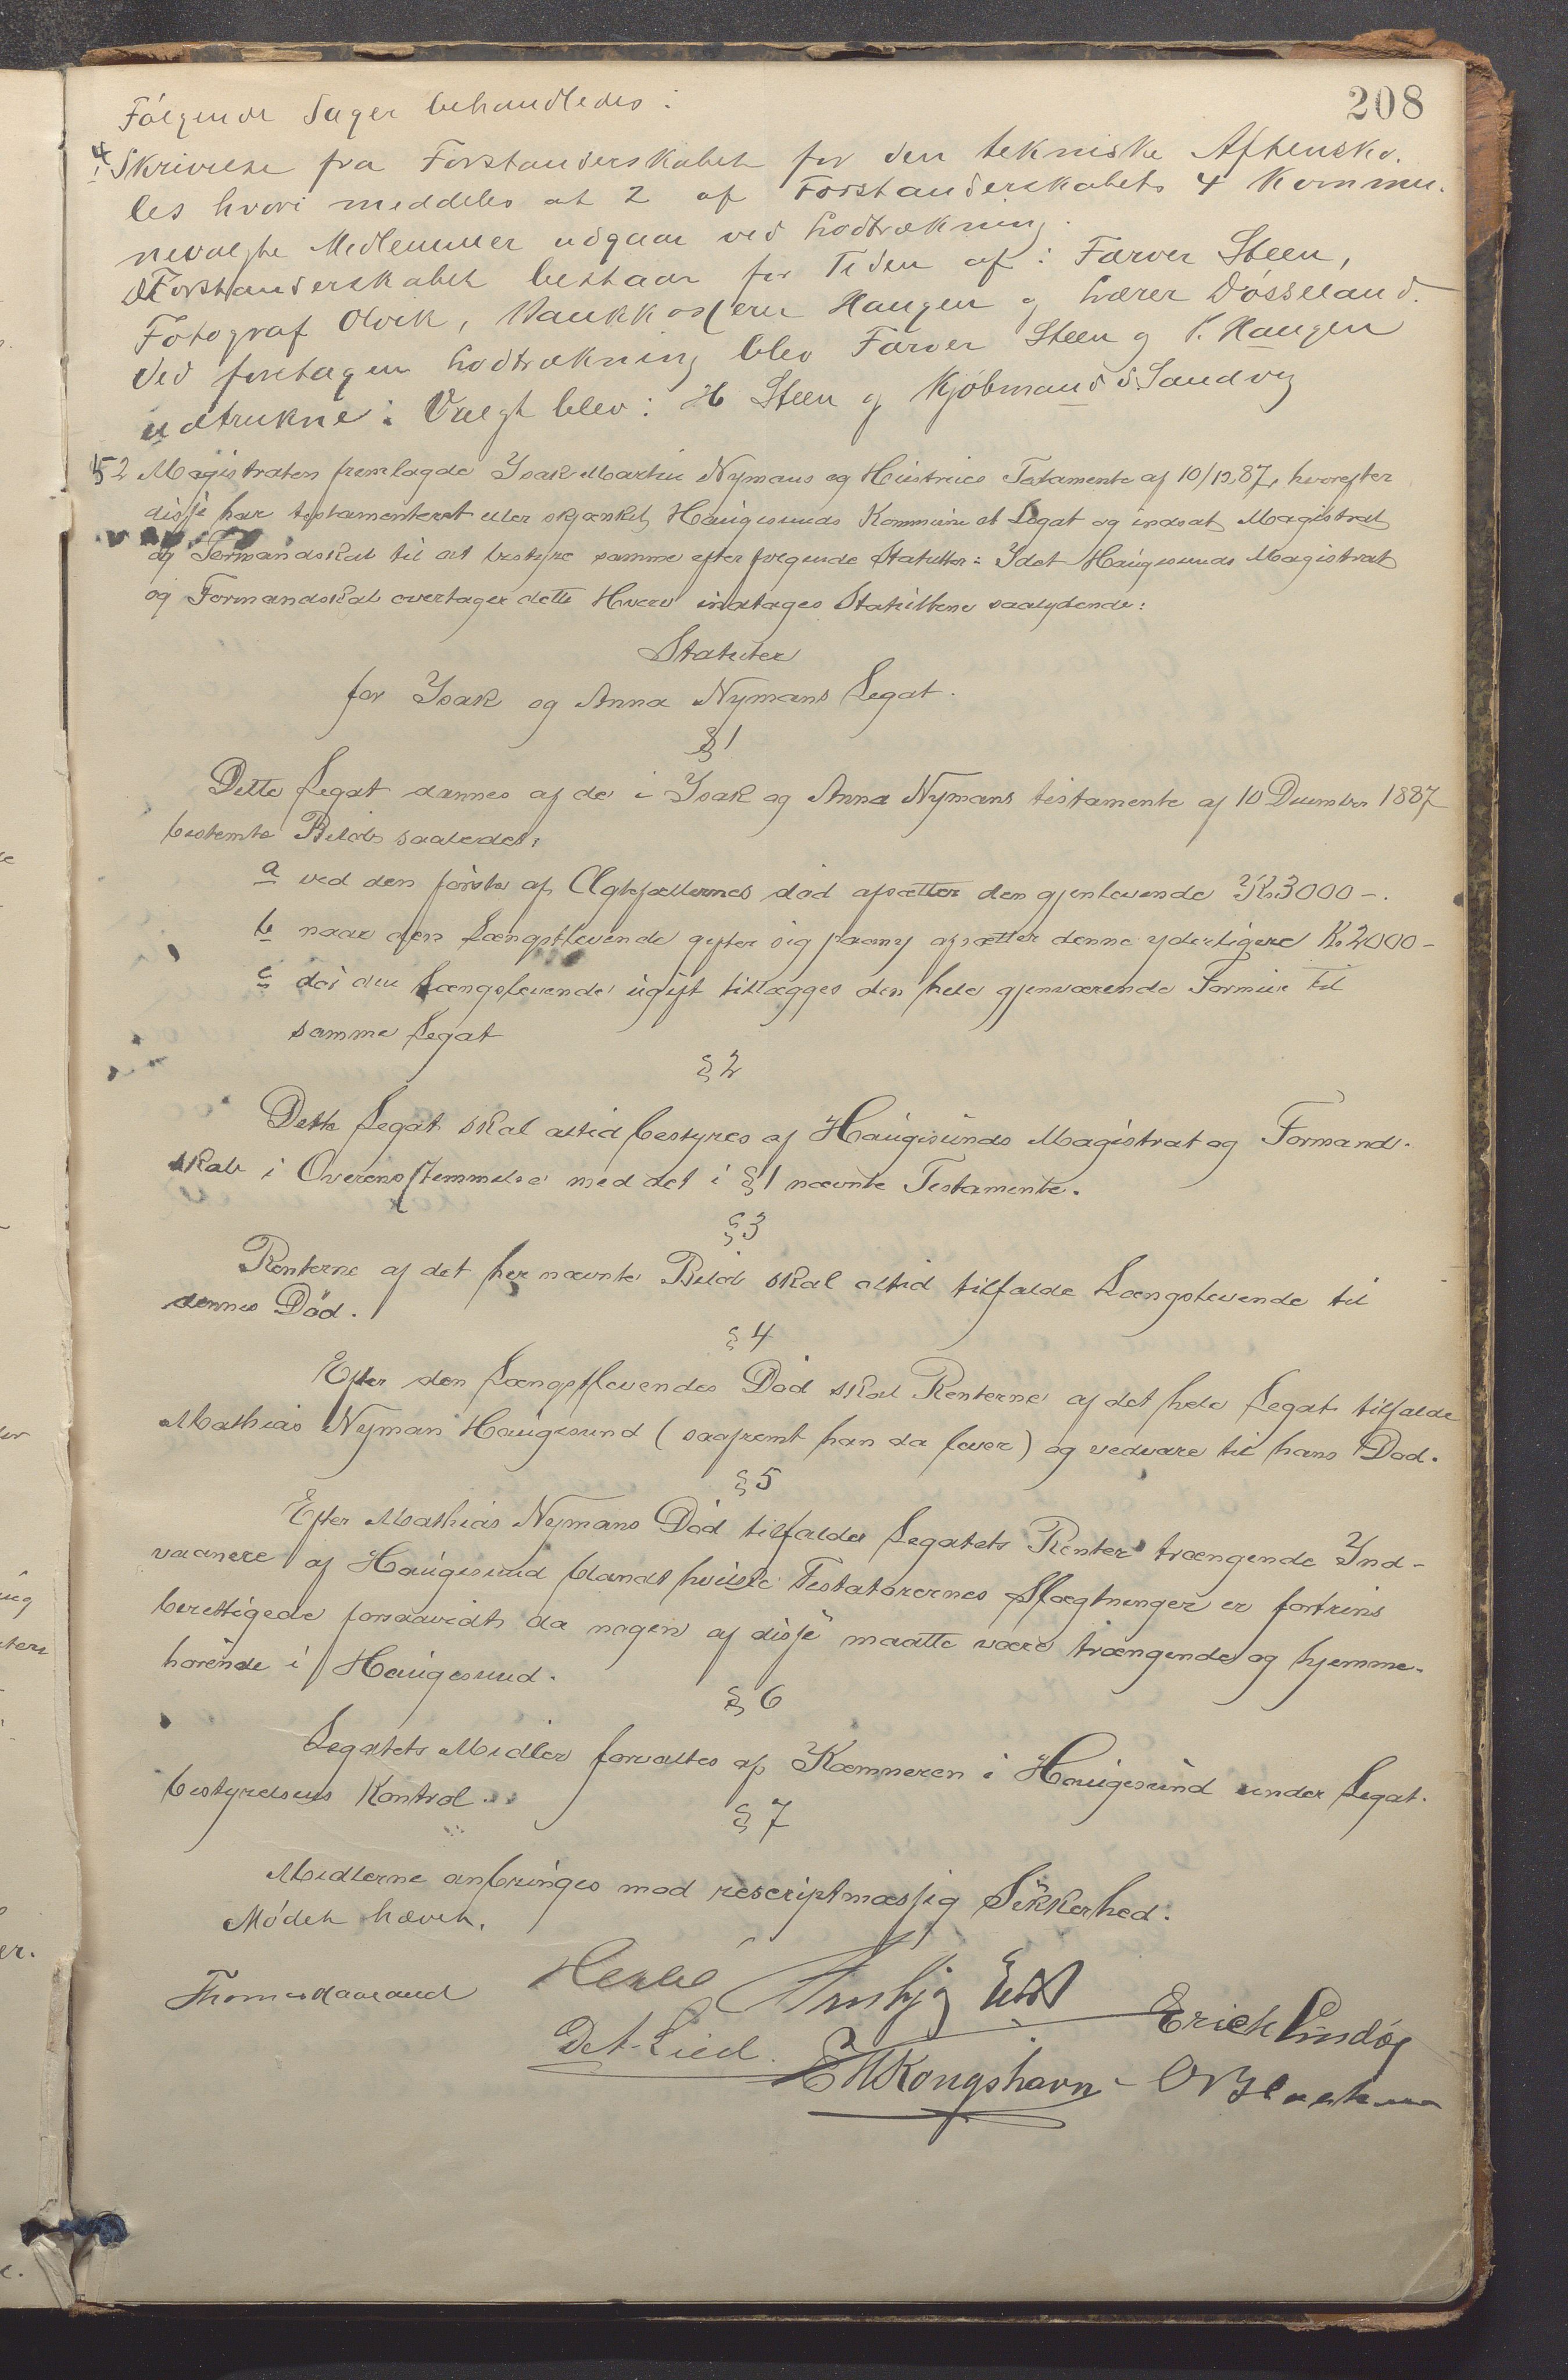 208
Følgende Sager behandledes:
4 Skrivelse fra Forstanderskabet for den tekniske Aftensko-
les hvori meddeles at 2 af Forstanderskabets 4 Kommu-
nevalgte Medlemmer udgaar ved Lodtrækning.
Forstanderskabet bestaar for Tiden af: Farver Steen,
Fotograf Olvik, Haugen og Lærer Døsseland.
Ved foretagen Lodtrækning blev Farver Steen og P. Haugen
udtrukne: Valgt blev: H Steen og Kjøbmand S. Sandvig
5 2 Magistraten fremlagde Isak Martin Nymans og Hustrues Testamente af 10/12 87, hvorefter
disse har testamenteret eller skjænket Haugesunds Kommune et Legat og indsat Magistrat
og Formandskab til at bestyre samme efter følgende Statutter: Idet Haugesunds Magistrat
og Formandskab overtager dette Hverv indtages Statuttene saalydende:
Statuter
for Isak og Anna Nymans Legat.
§ 1
Dette Legat dannes af de i Isak og Anna Nymans testamente af 10 December 1887
bestemte Beløb saaledes:
a ved den første af Ægtefællernes død afsætter den gjenlevende Kr. 3000 -.
b naar den Længstlevende gifter sig paany afsætter denne yderligere Kr. 2000 -
c dør den Længstlevende ugift tillægges den hele gjenværende Formue til
samme Legat
§ 2
Dette Legat skal altid bestyres af Haugesunds Magistrat og Formand-
skab i Overensstemmelse med det i § 1 nævnte Testamente.
§ 3
Renterne af det her nævnte Beløb skal altid tilfalde Længstlevende til
dennes Død.
§ 4
Efter den Længstlevendes Død skal Renterne af det hele Legat tilfalde
Mathias Nyman Haugesund (saafremt han da lever) og vedvare til hans Død.
§ 5
Efter Mathias Nymans Død tilfalder Legatets Renter trængende Ind-
vaanere af Haugesund blandt hvilke Testatorernes Slægtninger er fortrins
berettigede forsaavidt da nogen af disse maatte være trængende og hjemme-
hørende i Haugesund.
§ 6
Legatets Midler forvaltes af Kæmneren i Haugesund under Legat-
bestyrelsens Kontrol.
§ 7
Midlerne anbringes mod rescriptmæssig Sikkerhed.
Mødet hævet.
Erich Lindøe
E H Kongshavn